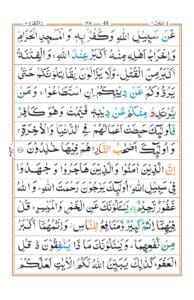 عَنْ سَبِيْلِ اللّٰهِ وَكُفْرٌۢ بِهٖ وَالْمَسْجِدِ الْحَرَامِ
وَاِخْرَاجُ اَهْلِهٖ مِنْهُ اَكْبَرُ عِنْدَ اللّٰهِ ۚ وَالْفِتْنَةُ
اَكْبَرُ مِنَ الْقَتْلِ ؕ وَلَا يَزَالُوْنَ يُقَاتِلُوْنَكُمْ حَتّٰى
يَرُدُّوْكُمْ عَنْ دِيْنِكُمْ اِنِ اسْتَطَاعُوْا ؕ وَمَنْ
يَّرْتَدِدْ مِنْكُمْ عَنْ دِيْنِهٖ فَيَمُتْ وَهُوَ كَافِرٌ
فَاُولٰٓئِكَ حَبِطَتْ اَعْمَالُهُمْ فِى الدُّنْيَا وَالْاٰخِرَةِ ۚ
وَاُولٰٓئِكَ اَصْحٰبُ النَّارِ ۚ هُمْ فِيْهَا خٰلِدُوْنَ
اِنَّ الَّذِيْنَ اٰمَنُوْا وَالَّذِيْنَ هَاجَرُوْا وَجٰهَدُوْا
فِىْ سَبِيْلِ اللّٰهِ ۙ اُولٰٓئِكَ يَرْجُوْنَ رَحْمَتَ اللّٰهِ ؕ وَاللّٰهُ
غَفُوْرٌ رَّحِيْمٌ يَسْئَلُوْنَكَ عَنِ الْخَمْرِ وَالْمَيْسِرِ ؕ قُلْ
فِيْهِمَآ اِثْمٌ كَبِيْرٌ وَّمَنَافِعُ لِلنَّاسِ ؗ وَاِثْمُهُمَآ اَكْبَرُ
مِنْ نَّفْعِهِمَا ؕ وَيَسْئَلُوْنَكَ مَاذَا يُنْفِقُوْنَ ؕ قُلِ
الْعَفْوَ ؕ كَذٰلِكَ يُبَيِّنُ اللّٰهُ لَكُمُ الْاٰيٰتِ لَعَلَّكُمْ